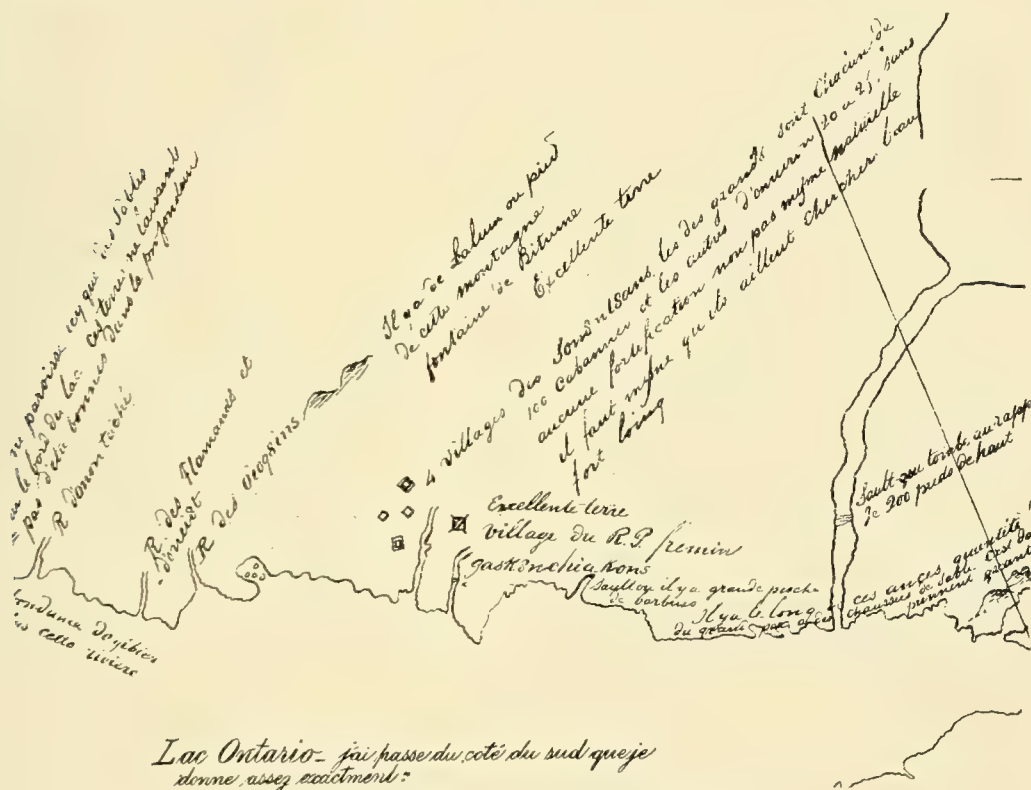 ne paroisse icy que des sables
sur le bord du Lac ces terres ne laissent
pas d'etre bonnes dans la profondeur
R d'onontiché
R. des Flamands et
R des oiogSins
Il y a de Lalun ou pied
de cette montagne
fontaine de Bitume
Excellente terre
4 villages des SonSntSans, les des grands sont Chacun de
100 cabannes et les autres d'environ 20 a 25, sans
aucune fortification non pas mesme naturelle
il faut mesme qu'ils aillent chercher l'eau
fort loing
Excellente terre
village du R.P. fremin
gaskSnchiakons
Sault ou il y a grande pesche
de barbues
Il y a le long
du grand
ces ances, quantité
chaussées de sable
prennent
Sault qui tombe au rapp
de 200 pieds de haut
abondance de gibier
cette riviere
Lac Ontario - jai passe du coté du sud que je
donne assez exactment: